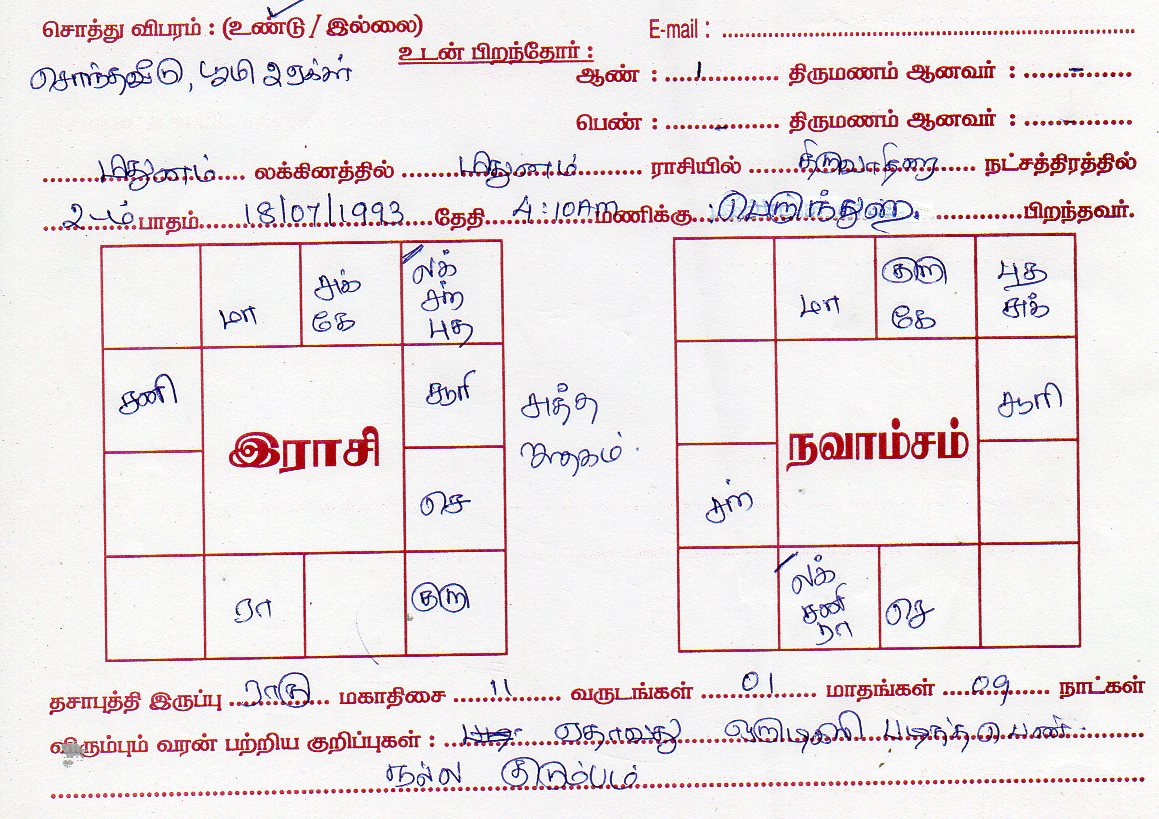 சொத்து விபரம் : (உண்டு / இல்லை) E-mail : ........
உடன் பிறந்தோர் :
சொந்தவீடு, பூமி 2 ஏக்கர் ஆண் : 1 திருமணம் ஆனவர் : -
பெண் : - திருமணம் ஆனவர் : -
மிதுனம் லக்கினத்தில் மிதுனம் ராசியில் திருவாதிரை நட்சத்திரத்தில்
2-ம் பாதம் 18/07/1993 தேதி 4:10AM மணிக்கு பெருந்துறை. பிறந்தவர்.
மா சுக் கே லக் சந் புத
சனி சூரி
இராசி
செ
ரா குரு
சுத்த
ஜாதகம்
மா குரு கே புத சுக்
சூரி
நவாம்சம்
சந்
லக் சனி ரா செ
தசாபுத்தி இருப்பு ராகு மகாதிசை 11 வருடங்கள் 01 மாதங்கள் 09 நாட்கள்
விரும்பும் வரன் பற்றிய குறிப்புகள் : ஏதாவது ஒரு டிகிரி படித்த பெண்.
நல்ல குடும்பம்